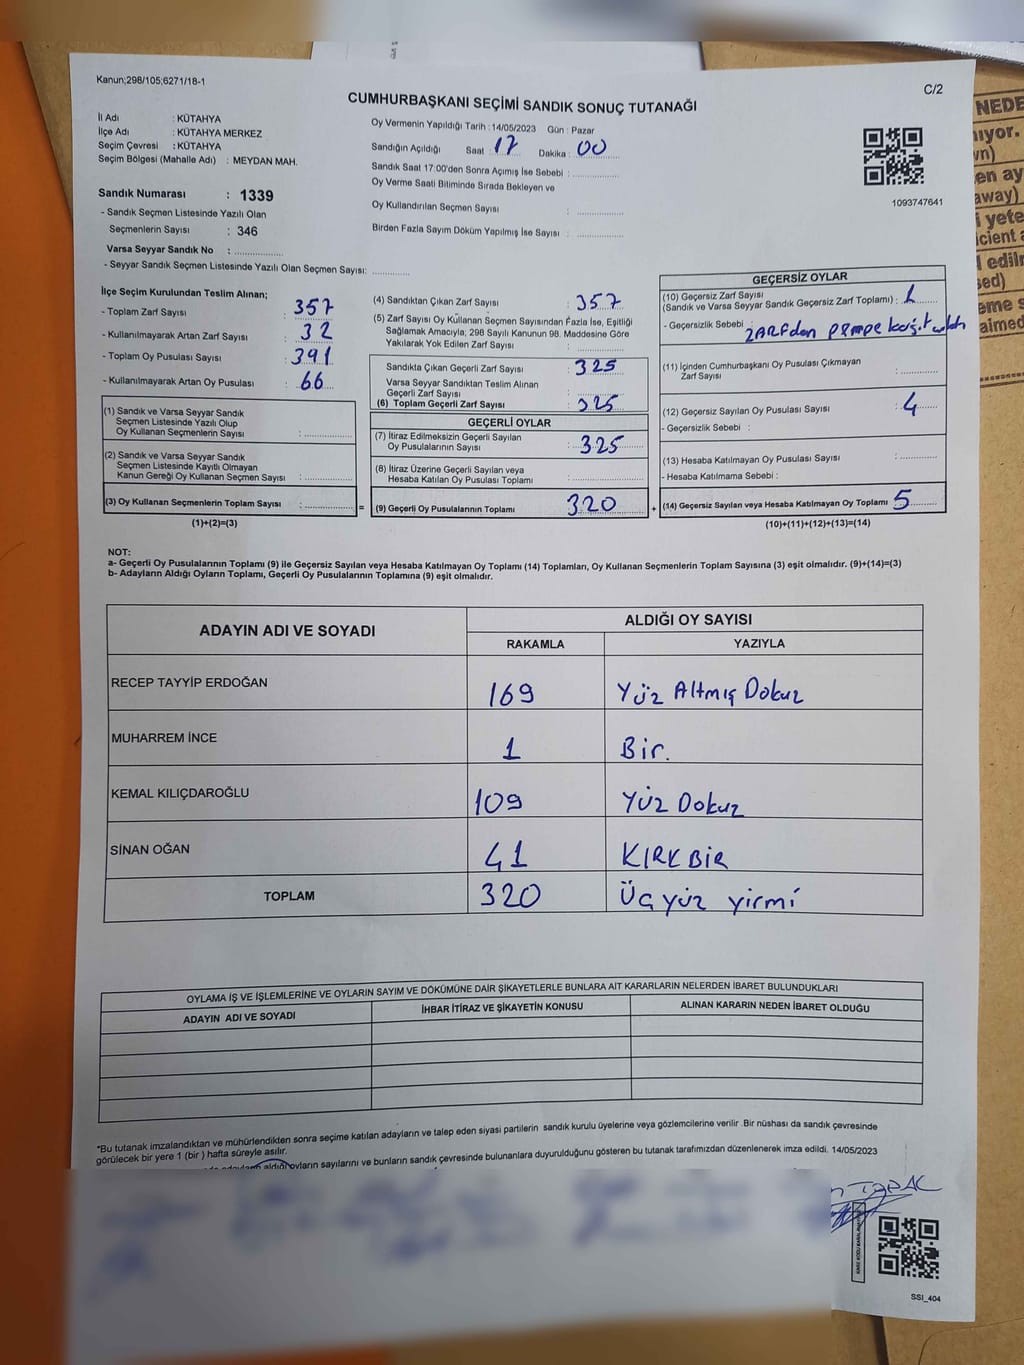 Kanun;298/105;6271/18-1
C/2
CUMHURBAŞKANI SEÇİMİ SANDIK SONUÇ TUTANAĞI
İl Adı : KÜTAHYA
İlçe Adı : KÜTAHYA MERKEZ
Seçim Çevresi : KÜTAHYA
Seçim Bölgesi (Mahalle Adı) : MEYDAN MAH.
Sandık Numarası : 1339
- Sandık Seçmen Listesinde Yazılı Olan
Seçmenlerin Sayısı : 346
Varsa Seyyar Sandık No :
- Seyyar Sandık Seçmen Listesinde Yazılı Olan Seçmen Sayısı:
Oy Vermenin Yapıldığı Tarih : 14/05/2023 Gün : Pazar
Sandığın Açıldığı Saat : 17 Dakika : 00
Sandık Saat 17:00'den Sonra Açımış İse Sebebi :
Oy Verme Saati Bitiminde Sırada Bekleyen ve
Oy Kullandırılan Seçmen Sayısı :
Birden Fazla Sayım Döküm Yapılmış İse Sayısı :
1093747641
İlçe Seçim Kurulundan Teslim Alınan;
- Toplam Zarf Sayısı : 357
- Kullanılmayarak Artan Zarf Sayısı : 32
- Toplam Oy Pusulası Sayısı : 391
- Kullanılmayarak Artan Oy Pusulası : 66
(1) Sandık ve Varsa Seyyar Sandık
Seçmen Listesinde Yazılı Olup
Oy Kullanan Seçmenlerin Sayısı :
(2) Sandık ve Varsa Seyyar Sandık
Seçmen Listesinde Kayıtlı Olmayan
Kanun Gereği Oy Kullanan Seçmen Sayısı :
(3) Oy Kullanan Seçmenlerin Toplam Sayısı : =
(1)+(2)=(3)
(4) Sandıktan Çıkan Zarf Sayısı : 357
(5) Zarf Sayısı Oy Kullanan Seçmen Sayısından Fazla İse, Eşitliği
Sağlamak Amacıyla; 298 Sayılı Kanunun 98. Maddesine Göre
Yakılarak Yok Edilen Zarf Sayısı :
Sandıkta Çıkan Geçerli Zarf Sayısı : 325
Varsa Seyyar Sandıktan Teslim Alınan
Geçerli Zarf Sayısı :
(6) Toplam Geçerli Zarf Sayısı : 325
GEÇERLİ OYLAR
(7) İtiraz Edilmeksizin Geçerli Sayılan
Oy Pusulalarının Sayısı : 325
(8) İtiraz Üzerine Geçerli Sayılan veya
Hesaba Katılan Oy Pusulası Toplamı :
(9) Geçerli Oy Pusulalarının Toplamı 320 +
GEÇERSİZ OYLAR
(10) Geçersiz Zarf Sayısı
(Sandık ve Varsa Seyyar Sandık Geçersiz Zarf Toplamı) : 1
- Geçersizlik Sebebi : ZARFdan pempe kağıt
(11) İçinden Cumhurbaşkanı Oy Pusulası Çıkmayan
Zarf Sayısı :
(12) Geçersiz Sayılan Oy Pusulası Sayısı : 4
- Geçersizlik Sebebi :
(13) Hesaba Katılmayan Oy Pusulası Sayısı :
- Hesaba Katılmama Sebebi :
(14) Geçersiz Sayılan veya Hesaba Katılmayan Oy Toplamı 5
(10)+(11)+(12)+(13)=(14)
NOT:
a- Geçerli Oy Pusulalarının Toplamı (9) ile Geçersiz Sayılan veya Hesaba Katılmayan Oy Toplamı (14) Toplamları, Oy Kullanan Seçmenlerin Toplam Sayısına (3) eşit olmalıdır. (9)+(14)=(3)
b- Adayların Aldığı Oyların Toplamı, Geçerli Oy Pusulalarının Toplamına (9) eşit olmalıdır.
ADAYIN ADI VE SOYADI ALDIĞI OY SAYISI
RAKAMLA YAZIYLA
RECEP TAYYİP ERDOĞAN 169 Yüz Altmış Dokuz
MUHARREM İNCE 1 Bir.
KEMAL KILIÇDAROĞLU 109 Yüz Dokuz
SİNAN OĞAN 41 KIRK BİR
TOPLAM 320 Üç yüz yirmi
OYLAMA İŞ VE İŞLEMLERİNE VE OYLARIN SAYIM VE DÖKÜMÜNE DAİR ŞİKAYETLERLE BUNLARA AİT KARARLARIN NELERDEN İBARET BULUNDUKLARI
ADAYIN ADI VE SOYADI İHBAR İTİRAZ VE ŞİKAYETİN KONUSU ALINAN KARARIN NEDEN İBARET OLDUĞU
*Bu tutanak imzalandıktan ve mühürlendikten sonra seçime katılan adayların ve talep eden siyasi partilerin sandık kurulu üyelerine veya gözlemcilerine verilir. Bir nüshası da sandık çevresinde
görülecek bir yere 1 (bir) hafta süreyle asılır.
aldığı oyların sayılarını ve bunların sandık çevresinde bulunanlara duyurulduğunu gösteren bu tutanak tarafımızdan düzenlenerek imza edildi. 14/05/2023
SSI_404
NEDE
away)
i yete
icient a
l edilm
sed)
eme s
aimed